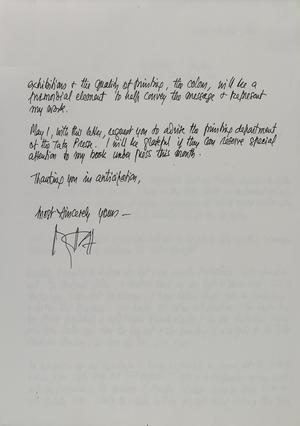 exhibitions & the quality of printing, the colour, will be a
primordial element to help convey the message & represent
my work.
May I, with this letter, request you to advise the printing department
at the Tata Press. I will be grateful if they can reserve special
attention to my book under press this month.
Thanking you in anticipation,
Most Sincerely yours -